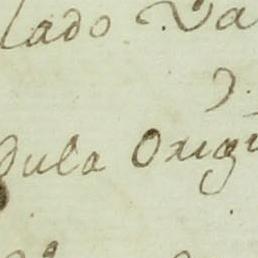 lado Va
dula Origi